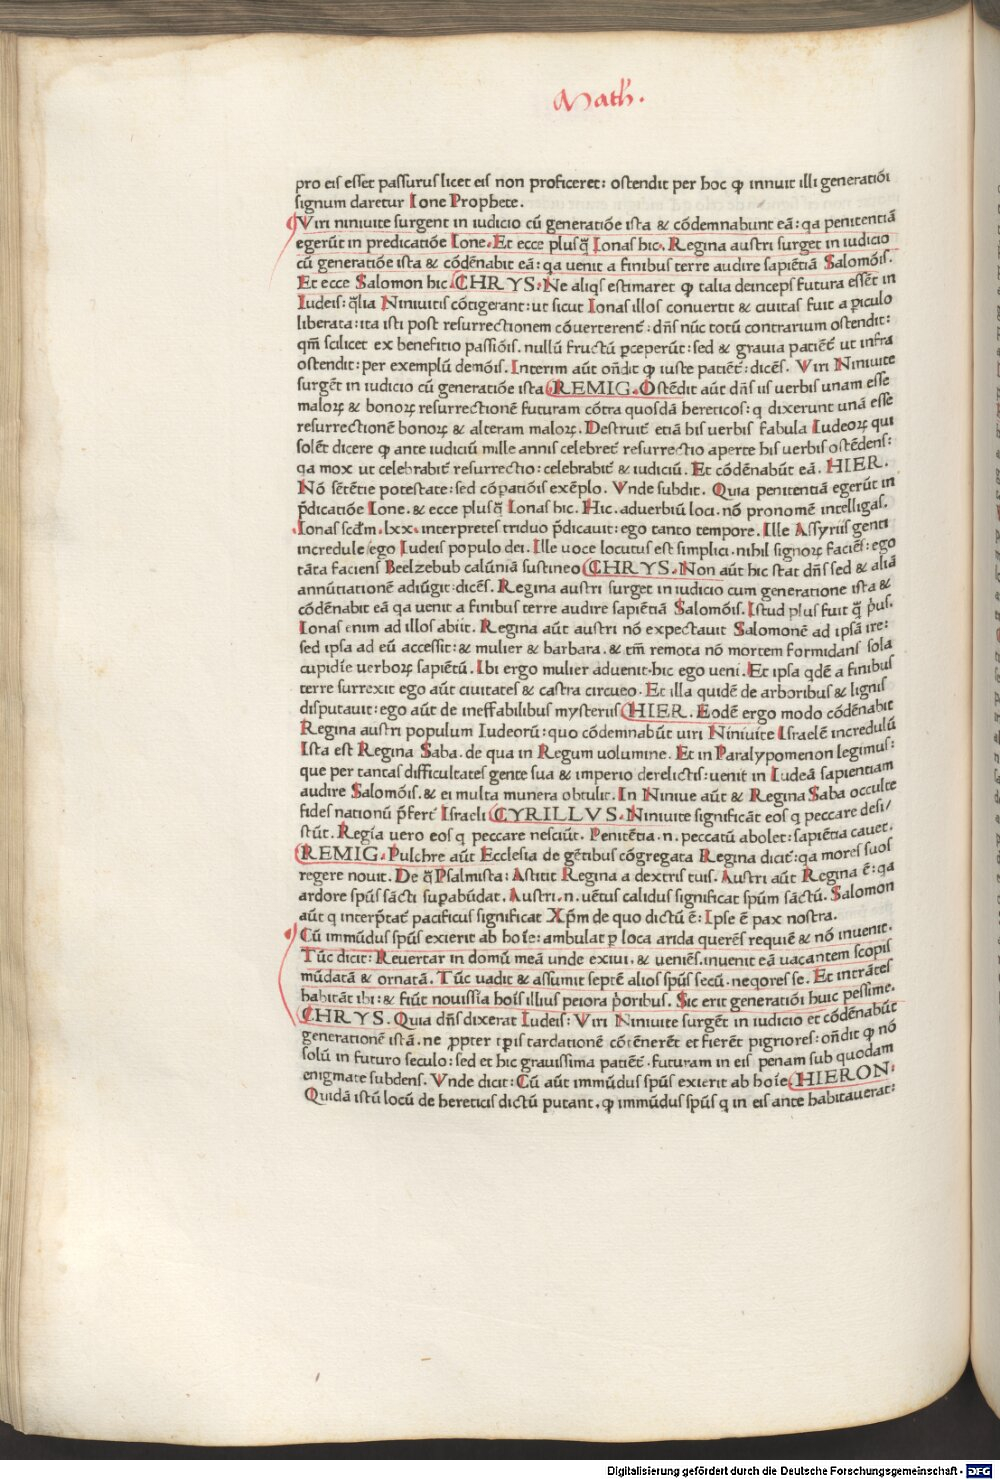 Math.
pro eis esset passurus licet eis non proficeret: ostendit per hoc ꝙ innuit illi generatiōi
signum daretur Ione Prophete.
Viri niniuite surgent in iudicio cū generatiōe ista & cōdemnabunt eā: qa penitentiā
egerūt in predicatiōe Ione. Et ecce plusq̄ Ionas hic. Regina austri surget in iudicio
cū generatiōe ista & cōdēnabit eā: qa uenit a finibus terre audire sapiētiā Salomōis.
Et ecce Salomon hic. CHRYS. Ne aliqs estimaret ꝙ talia deinceps futura essēt in
Iudeis: q̄lia Niniuitis cōtigerant: ut sicut Ionas illos conuertit & ciuitas fuit a ꝑiculo
liberata: ita isti post resurrectionem cōuerterent̄: dn̄s nūc totū contrarium ostendit:
qm̄ scilicet ex benefitio passiōis. nullū fructū ꝑceperūt: sed & grauia patient̄ ut infra
ostendit: per exemplū demōis. Interim aūt on̄dit ꝙ iuste patient̄: dicēs. Viri Niniuite
surgēt in iudicio cū generatiōe ista REMIG. Ostēdit aūt dn̄s iis uerbis unam esse
maloꝝ & bonoꝝ resurrectionē futuram cōtra quosdā hereticos: q dixerunt unā esse
resurrectionē bonoꝝ & alteram maloꝝ. Destruit̄ etiā his uerbis fabula Iudeoꝝ qui
solēt dicere ꝙ ante iudiciū mille annis celebret̄ resurrectio aperte his uerbis ostēdens:
qa mox ut celebrabit̄ resurrectio: celebrabit̄ & iudiciū. Et cōdēnabūt eā. HIER.
Nō sētētie potestate: sed cōpatiōis exēplo. Vnde subdit. Quia penitentiā egerūt in
p̄dicatiōe Ione. & ecce plusq̄ Ionas hic. Hic. aduerbiū loci. nō pronomē intelligas.
Ionas scd̄m .lxx. interpretes triduo p̄dicauit: ego tanto tempore. Ille Assyriis genti
incredule/ego Iudeis populo dei. Ille uoce locutus est simplici. nihil signoꝝ faciēs: ego
tāta faciens Beelzebub calūniā sustineo CHRYS. Non aūt hic stat dn̄s sed & aliā
annūtiationē adiūgit: dicēs. Regina austri surget in iudicio cum generatione ista &
cōdēnabit eā qa uenit a finibus terre audire sapiētiā Salomōis. Istud plus fuit q̄ p̄us.
Ionas enim ad illos abiit. Regina aūt austri nō expectauit Salomonē ad ipsā ire:
sed ipsa ad eū accessit: & mulier & barbara. & tm̄ remota nō mortem formidans sola
cupidīe uerboꝝ sapiētū. Ibi ergo mulier aduenit. hic ego ueni. Et ipsa qdē a finibus
terre surrexit ego aūt ciuitates & castra circueo. Et illa quidē de arboribus & lignis
disputauit: ego aūt de ineffabilibus mysteriis HIER. Eodē ergo modo cōdēnabit
Regina austri populum Iudeorū: quo cōdemnabūt uiri Niniuite Israelē incredulū
Ista est Regina Saba. de qua in Regum uolumine. Et in Paralypomenon legimus:
que per tantas difficultates gente sua & imperio derelictis: uenit in Iudeā sapientiam
audire Salomōis. & ei multa munera obtulit. In Niniue aūt & Regina Saba occulte
fides nationū p̄fert̄ Israeli CYRILLVS. Niniuite significāt eos q peccare desi/
stūt. Regīa uero eos q peccare nesciūt. Penitētia .n. peccatū abolet: sapiētia cauet.
REMIG. Pulchre aūt Ecclesia de gētibus cōgregata Regina dicit̄: qa mores suos
regere nouit. De q̄ Psalmista: Astitit Regina a dextris tuis. Austri aūt Regina ē: qa
ardore spūs sācti suꝑabūdat. Austri .n. uētus calidus significat spūm sāctū. Salomon
aūt q interp̄tat̄ pacificus significat Xp̄m de quo dictū ē: Ipse ē pax nostra.
Cū immūdus spūs exierit ab hoīe: ambulat ꝑ loca arida querēs requiē & nō inuenit.
Tūc dicit: Reuertar in domū meā unde exiui. & ueniēs. inuenit eā uacantem scopis
mūdatā & ornatā. Tūc uadit & assumit septē alios spūs secū. neqores se. Et intrātes
habitāt ibi: & fiūt nouissīa hoīs illius peiora p̄oribus. Sic erit generatiōi huic pessime.
CHRYS. Quia dn̄s dixerat Iudeis: Viri Niniuite surgēt in iudicio et cōdēnabūt
generationē istā. ne ꝓpter tꝑis tardationē cōtēnerēt et fierēt pigriores: on̄dit ꝙ nō
solū in futuro seculo: sed et hic grauissima patient̄. futuram in eis penam sub quodam
enigmate subdens. Vnde dicit: Cū aūt immūdus spūs exierit ab hoīe HIERON.
Quidā istū locū de hereticis dictū putant. ꝙ immūdus spūs q in eis ante habitauerat:
Digitalisierung gefördert durch die Deutsche Forschungsgemeinschaft - DFG